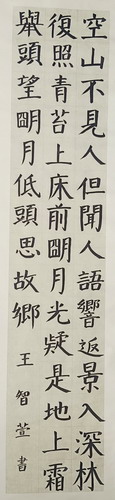 空山不見人但聞人語響返景入深林
復照青苔上床前明月光疑是地上霜
舉頭望明月低頭思故鄉
王智萱書